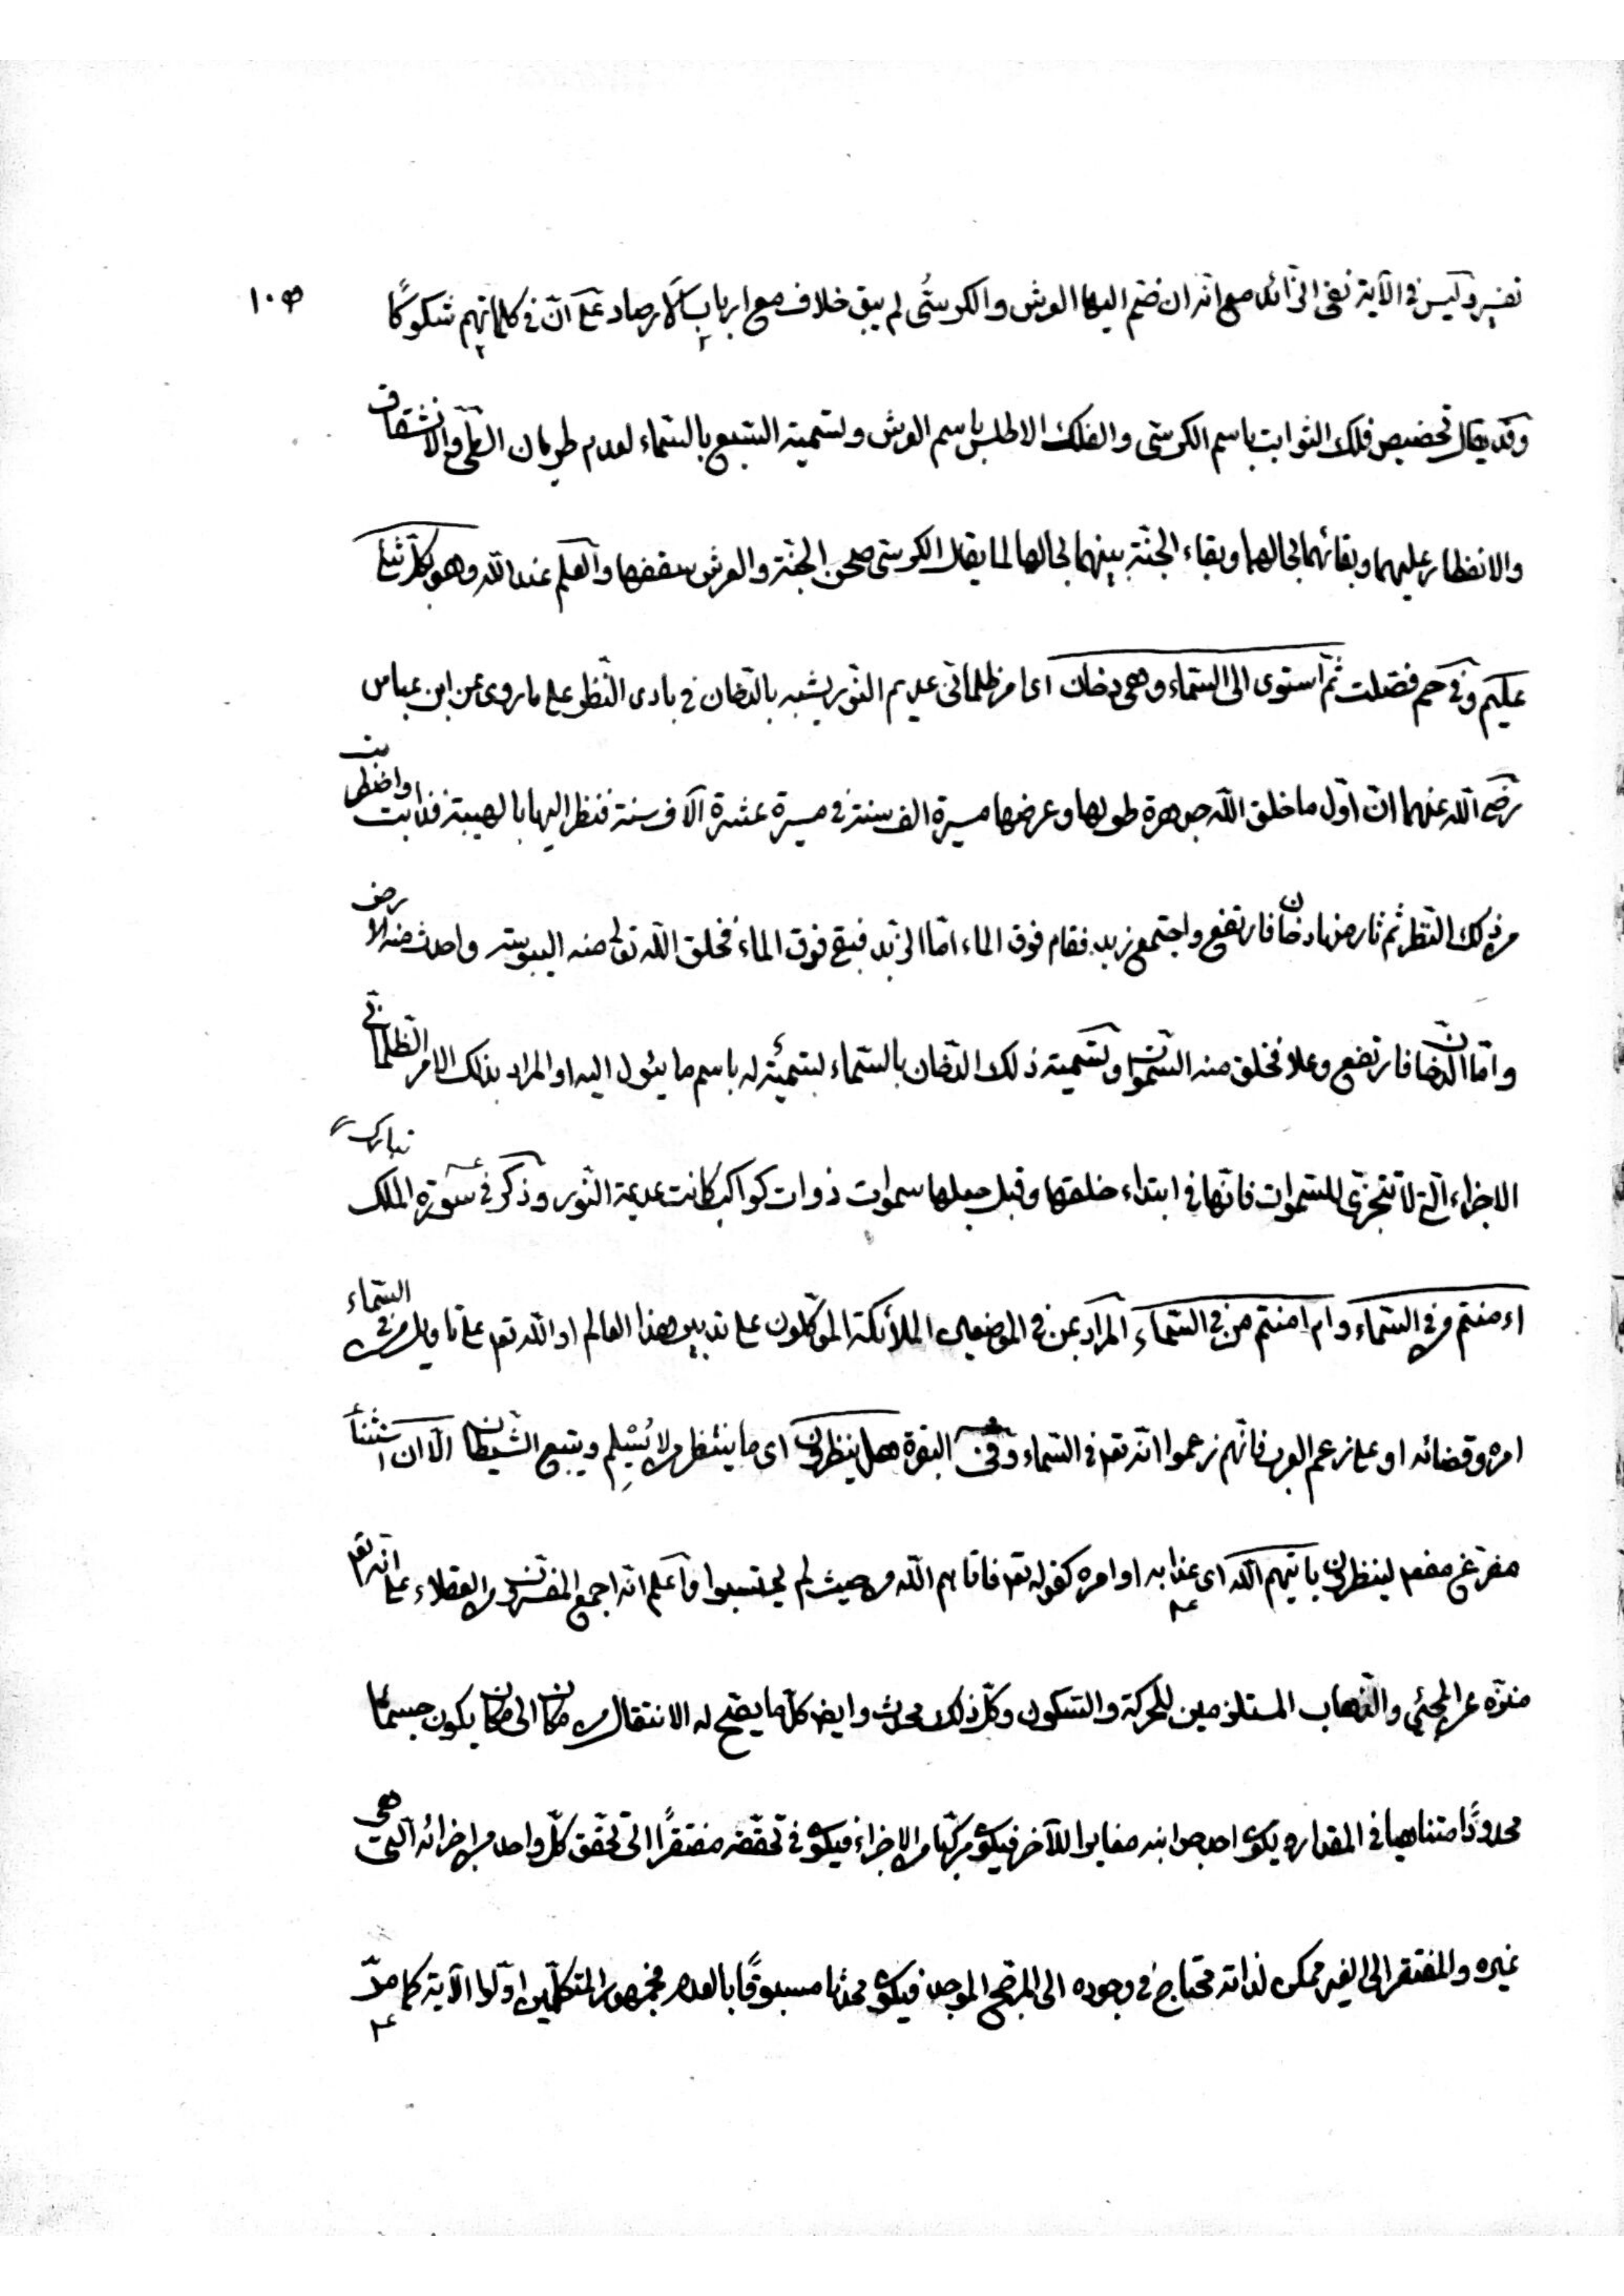 تفسير وليس في الآية نفي الزائد مع انه ان ضم اليها العرش والكرسي لم يبق خلاف مع ارباب الارصاد على ان في كلماتهم شكوكًا ١٠٥
وقد يقال تخصيص فلك الثوابت باسم الكرسي والفلك الاطلس باسم العرش وتسمية السبع بالسماء لعدم طريان الطي والانشقاق
والانفطار عليهما وبقائهما بحالهما وبقاء الجنة بينهما بحالها لما يقال الكرسي صحن الجنة والعرش سقفها والعلم عند الله وهو بكل شئ
عليم وفي حم فصلت ثم استوى الى السماء وهي دخان اى امر ظلماني عديم النور يشبه بالدخان في بادى النظر على ما روى عن ابن عباس
رضى الله عنهما ان اول ما خلق الله جوهرة طولها وعرضها مسيرة الف سنة في مسيرة عشرة آلاف سنة فنظر اليها بالهيبة فذابت واضطربت
من ذلك النظر ثم ثار منها دخان فارتفع واجتمع زبد فقام فوق الماء اما الزبد فبقى فوق الماء فخلق الله تعالى منه اليبوسة واحدث منه الارض
واما الدخان فارتفع وعلا فخلق منه السموات وتسمية ذلك الدخان بالسماء تسمية له باسم ما يئول اليه او المراد بذلك الامر الظلماني
الاجزاء التي لا تتجزى للسموات فانها في ابتداء خلقها وقبل جعلها سموات ذوات كواكب كانت عديمة النور وذكر في سورة الملك تبارك
ءامنتم من في السماء وام امنتم من في السماء المراد بمن في الموضعين الملائكة الموكلون على تدبير هذا العالم او الله تعـ على تاويل من في السماء
امره وقضائه او على زعم العرب فانهم زعموا انه تعـ في السماء وفي البقرة هل ينظرون اى ما ينتظر من لا يُسْلِم ويتبع الشيطان الا ان استثناء
مفرغ مفعـ لينظرون ياتيهم الله اى عذابه او امره كقوله تعـ فاتاهم الله من حيث لم يحتسبوا واعلم انه اجمع المفسرون من العقلاء على انه تعـ
منزه عن المجئي والذهاب المستلزمين للحركة والسكون وكل ذلك محدث وايضـ كل ما يصح له الانتقال من مكان الى مكان يكون جسمًا
محدودًا متناهيا في المقدار يكون احد جوانبه مغايرا للآخر فيكون مركبا من الاجزاء فيكون في تحققه مفتقرًا الى تحقق كل واحد من اجزائه التي هي
غيره والمفتقر الى الغير ممكن لذاته محتاج في وجوده الى المرجح الموجد فيكون محدثا مسبوقًا بالعدم فجمهور المتكلمين اولوا الآية كما مر